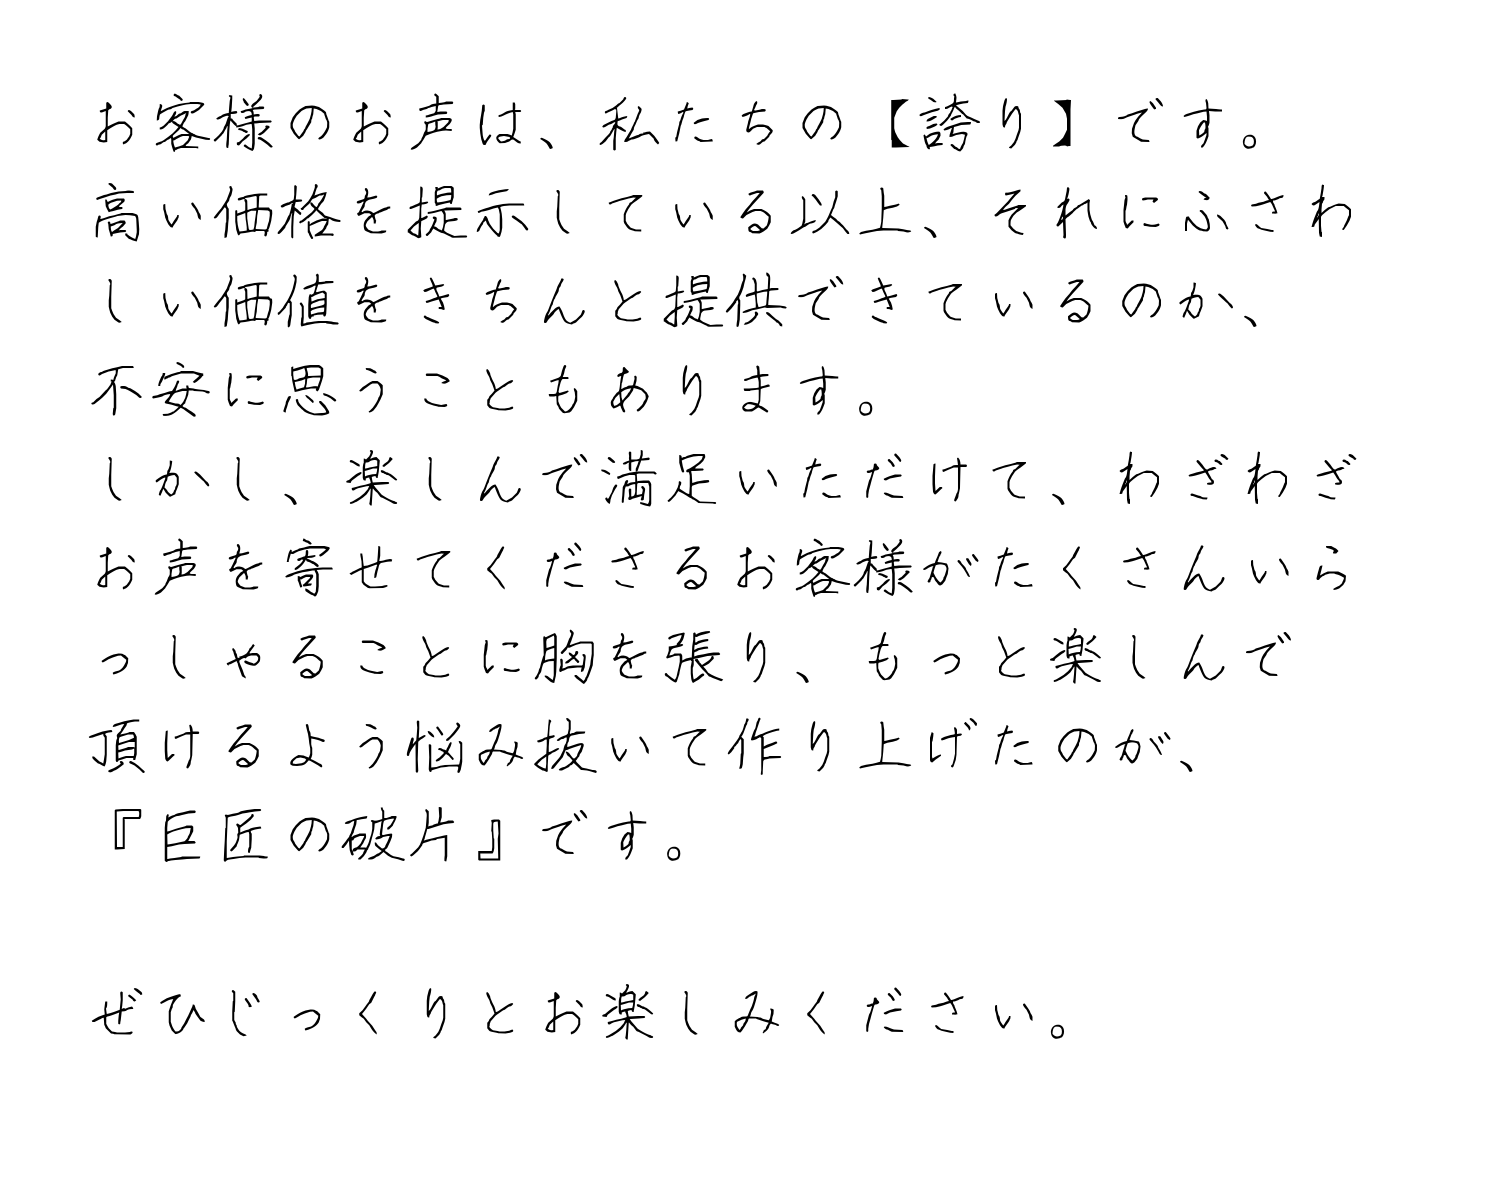 お客様のお声は、私たちの【誇り】です。
高い価格を提示している以上、それにふさわ
しい価値をきちんと提供できているのか、
不安に思うこともあります。
しかし、楽しんで満足いただけて、わざわざ
お声を寄せてくださるお客様がたくさんいら
っしゃることに胸を張り、もっと楽しんで
頂けるよう悩み抜いて作り上げたのが、
『巨匠の破片』です。
ぜひじっくりとお楽しみください。